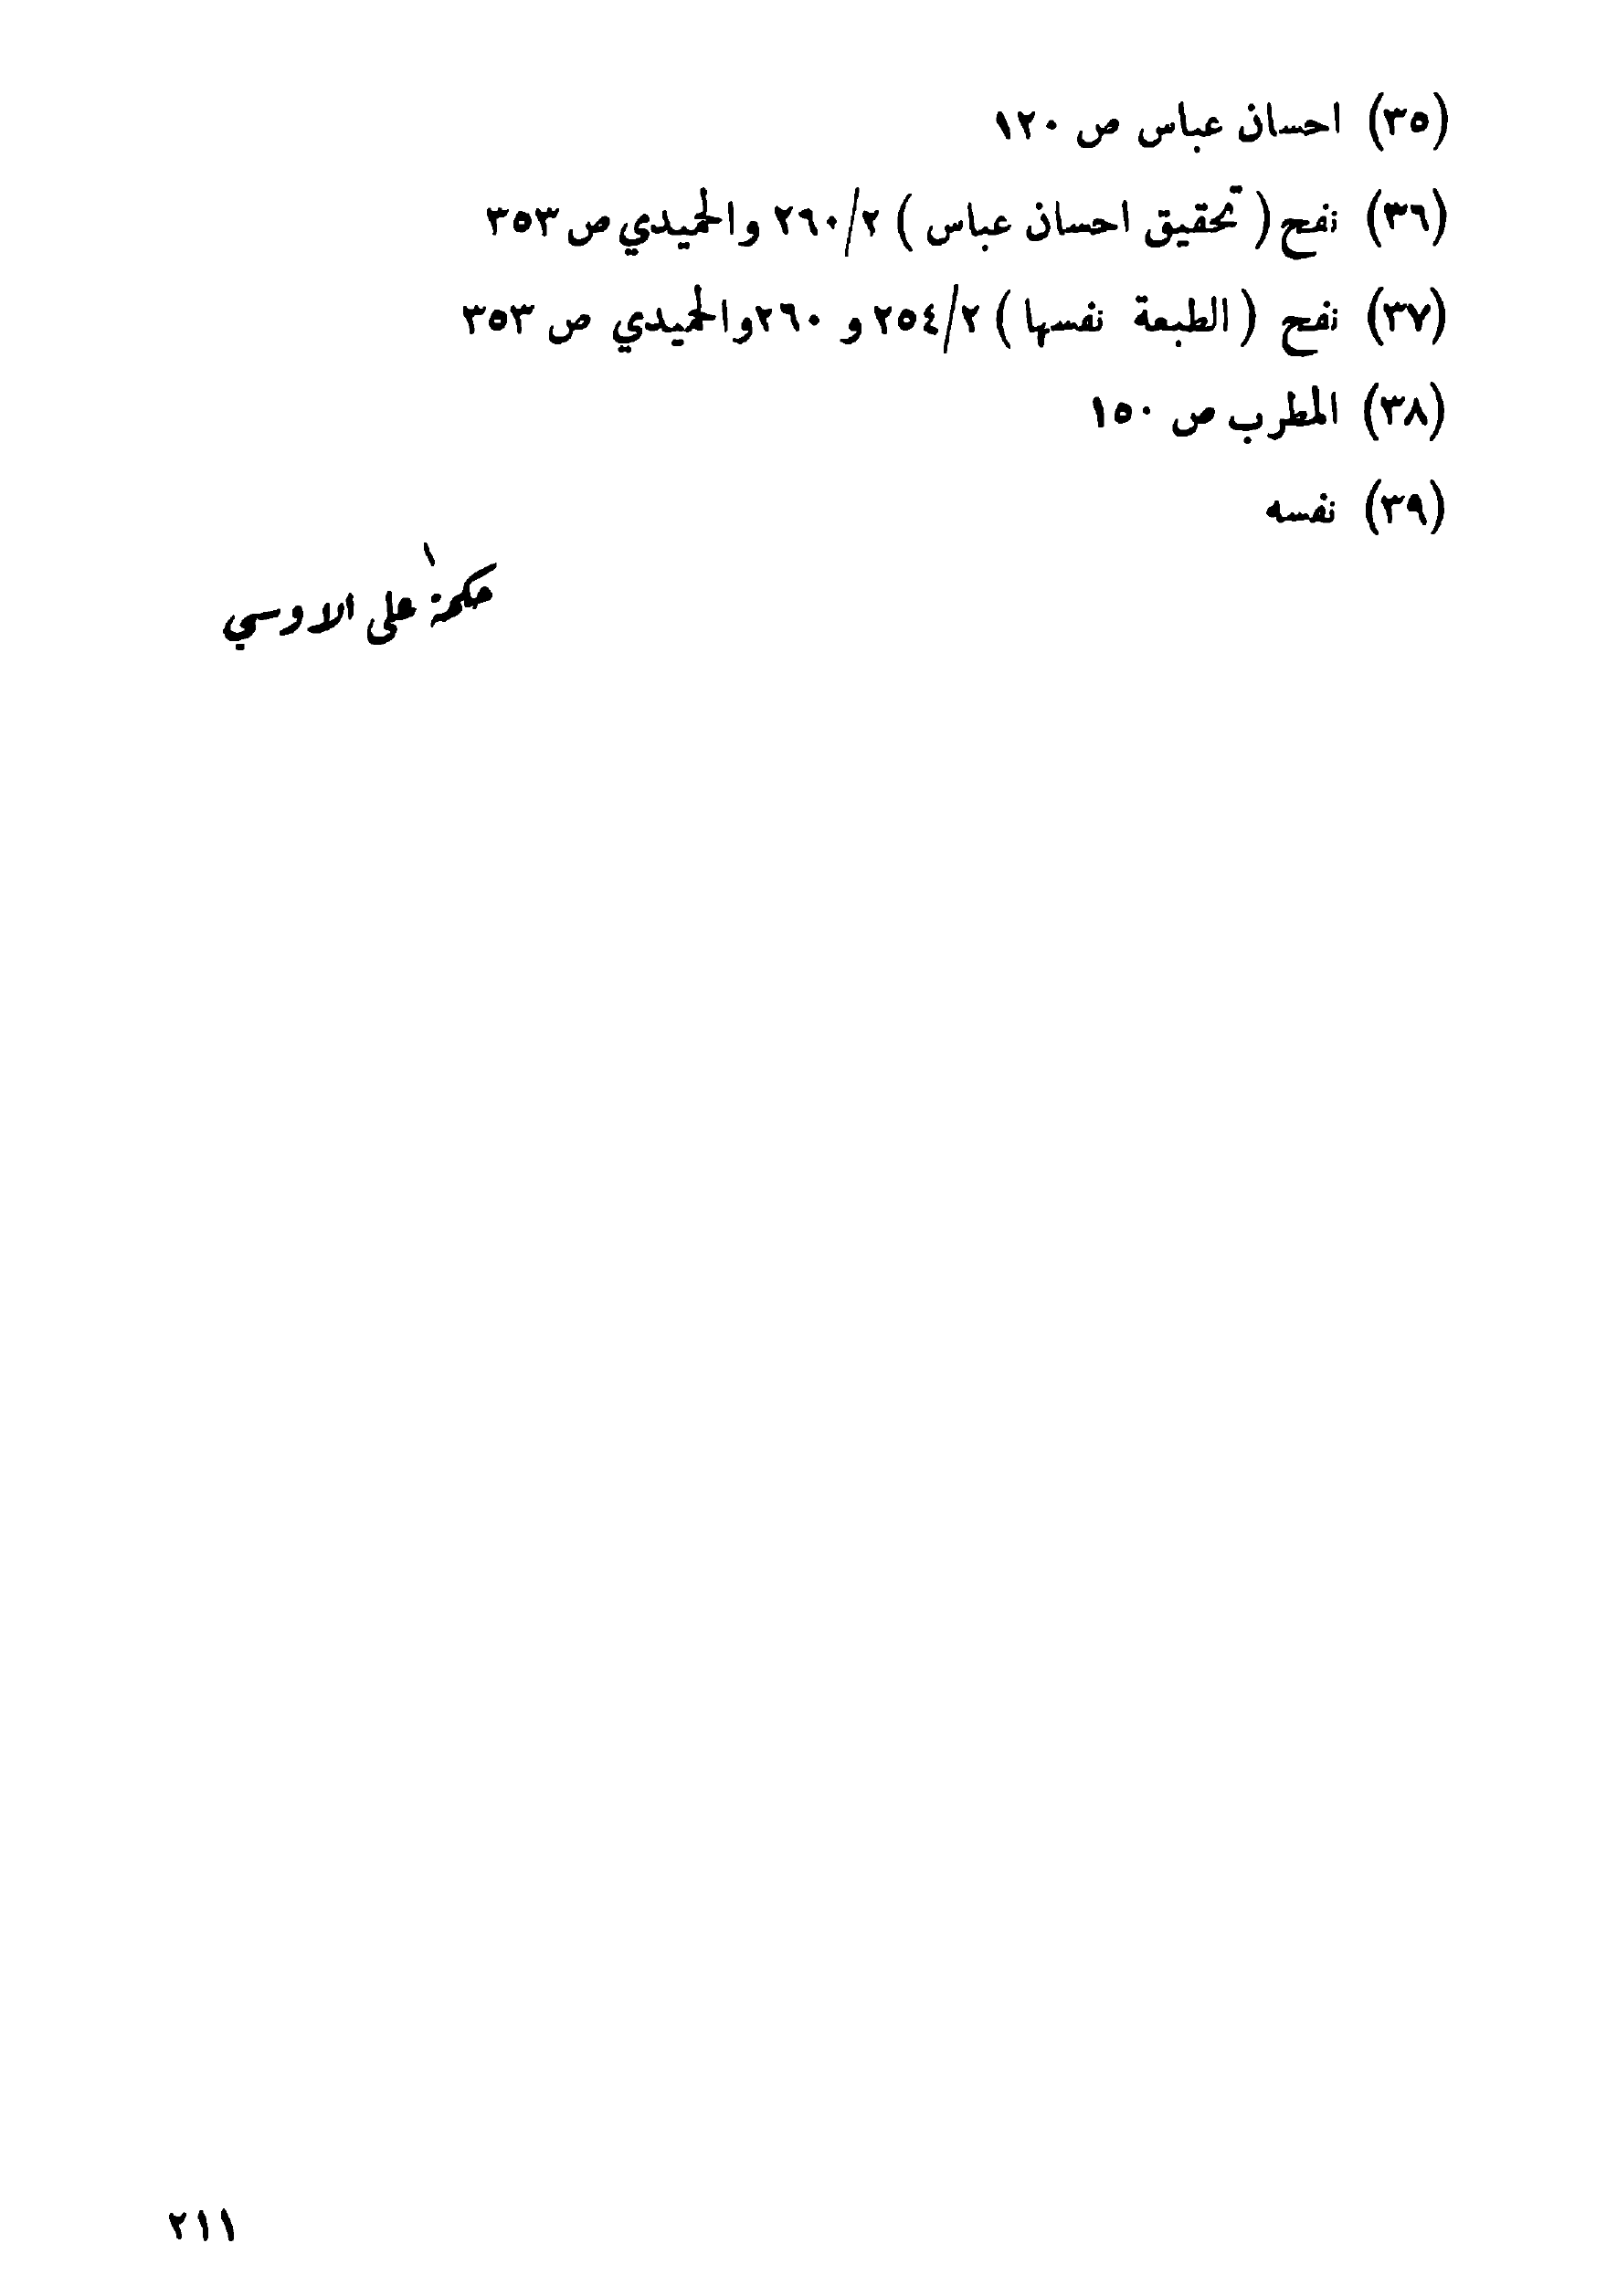 (٣٥) احسان عباس ص ١٢٠
(٣٦) نفح ( تحقيق احسان عباس ) ٢/‏٢٦٠ والحميدي ص ٣٥٣
(٣٧) نفح ( الطبعة نفسها ) ٢/‏٢٥٤ و ٢٦٠ والحميدي ص ٣٥٣
(٣٨) المطرب ص ١٥٠
(٣٩) نفسه
حكمة علي الاوسي
٢١١